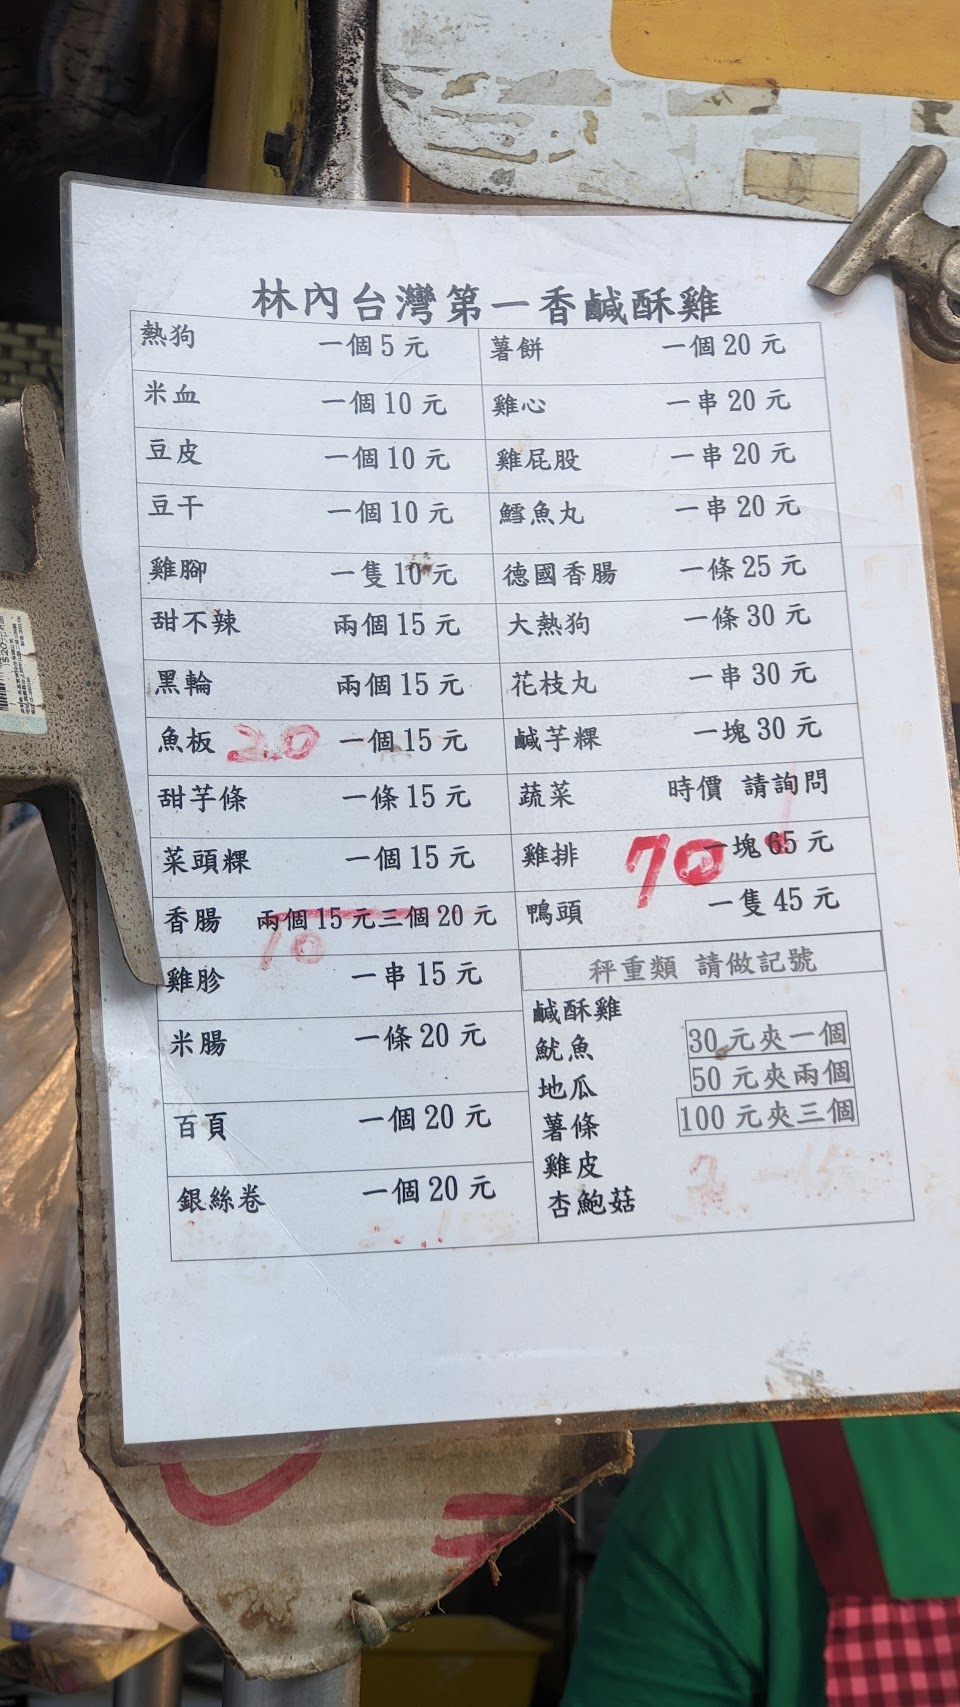 林內台灣第一香鹹酥雞
熱狗 一個5元
米血 一個10元
豆皮 一個10元
豆干 一個10元
雞腳 一隻10元
甜不辣 兩個15元
黑輪 兩個15元
魚板 20 一個15元
甜芋條 一條15元
菜頭粿 一個15元
香腸 兩個15元三個20元
10
雞胗 一串15元
米腸 一條20元
百頁 一個20元
銀絲卷 一個20元
薯餅 一個20元
雞心 一串20元
雞屁股 一串20元
鱈魚丸 一串20元
德國香腸 一條25元
大熱狗 一條30元
花枝丸 一串30元
鹹芋粿 一塊30元
蔬菜 時價 請詢問
雞排 70 一塊65元
鴨頭 一隻45元
秤重類 請做記號
鹹酥雞
魷魚 30元夾一個
地瓜 50元夾兩個
薯條 100元夾三個
雞皮
杏鮑菇